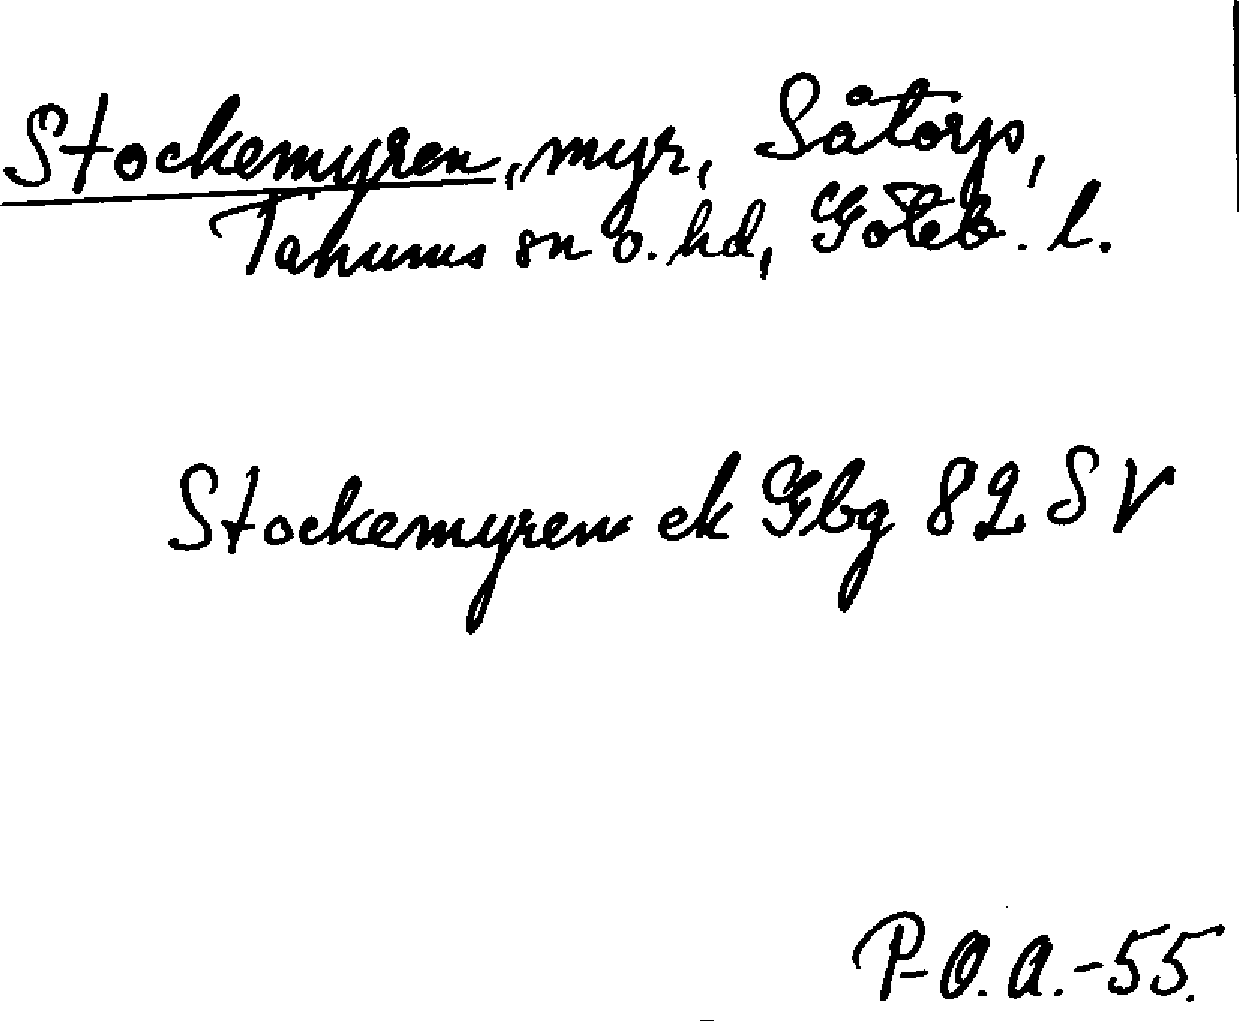 Stockemyren, myr, Såtorp,
Tanums sn o. hd, Göteb. l.
Stockemyren ek Gbg 82 SV
P-O.A.-55.